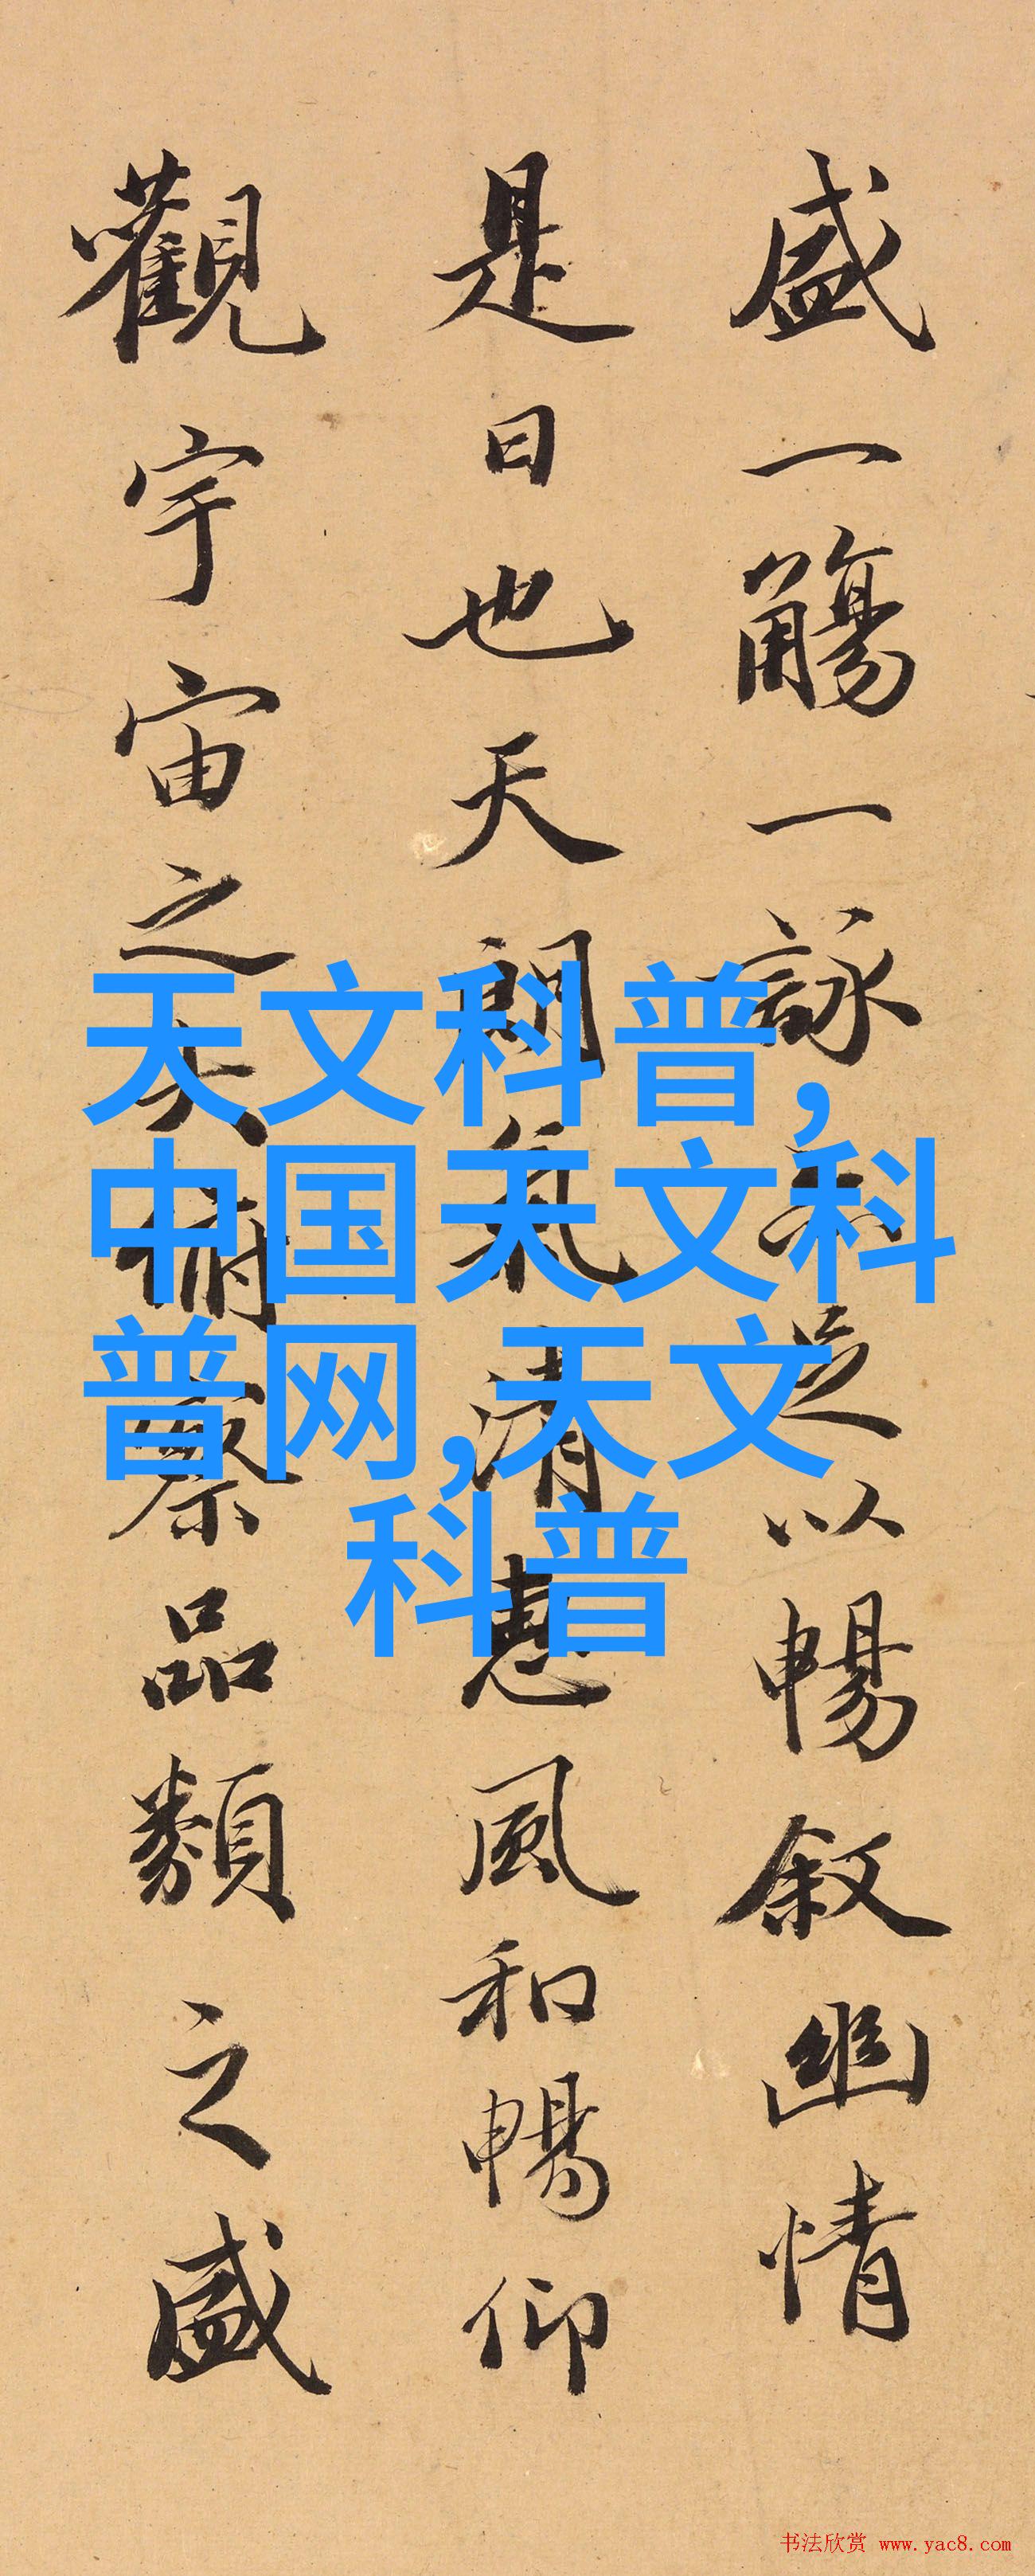 盛一觴一詠亦足以暢叙幽情
是日也天朗氣清惠風和暢仰
觀宇宙之大俯察品類之盛
天文科普,
中国天文科
普网,天文
科普
书法欣赏 www.yac8.com